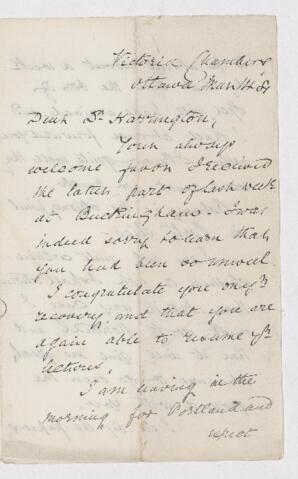 Victoria Chambers
Ottawa March
Dear Dr Harrington,
Your always
welcome favor I received
the latter part of last week
at Buckingham. I was
indeed sorry to learn that
you had been so unwell
I congratulate you on yr
recovery, and that you are
again able to resume yr
lectures,
I am leaving in the
morning for Portland and
expect